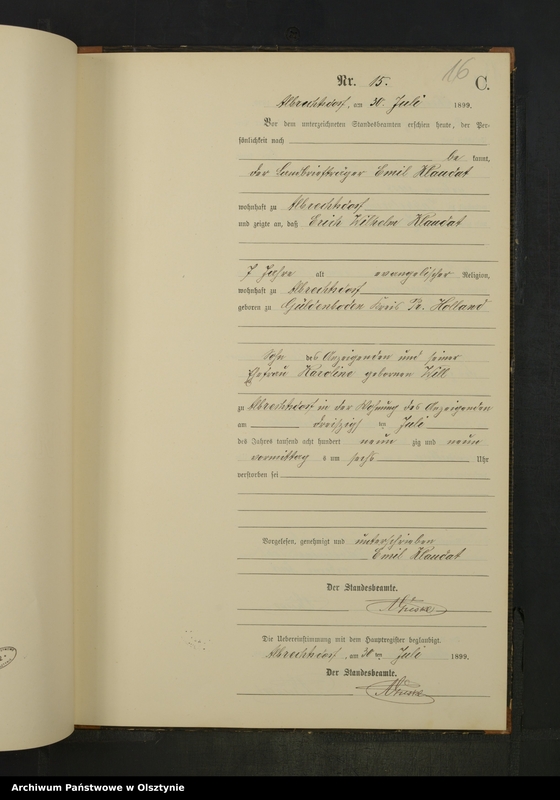 16
Nr. 15. C.
Albrechtsdorf, am 30. Juli 1899.
Vor dem unterzeichneten Standesbeamten erschien heute, der Per-
sönlichkeit nach
be kannt,
der Landbriefträger Emil Klaudat
wohnhaft zu Albrechtsdorf
und zeigte an, daß Erich Wilhelm Klaudat
7 Jahre alt evangelischer Religion,
wohnhaft zu Albrechtsdorf
geboren zu Güldenboden Kreis Pr. Holland
Sohn des Anzeigenden und seiner
Ehefrau Karoline geborenen Will
zu Albrechtsdorf in der Wohnung des Anzeigenden
am dreißigsten Juli
des Jahres tausend acht hundert neun zig und neun
vormittag s um sechs Uhr
verstorben sei
Vorgelesen, genehmigt und unterschrieben
Emil Klaudat
Der Standesbeamte.
Die Uebereinstimmung mit dem Hauptregister beglaubigt.
Albrechtsdorf, am 30 ten Juli 1899.
Der Standesbeamte.
Archiwum Państwowe w Olsztynie